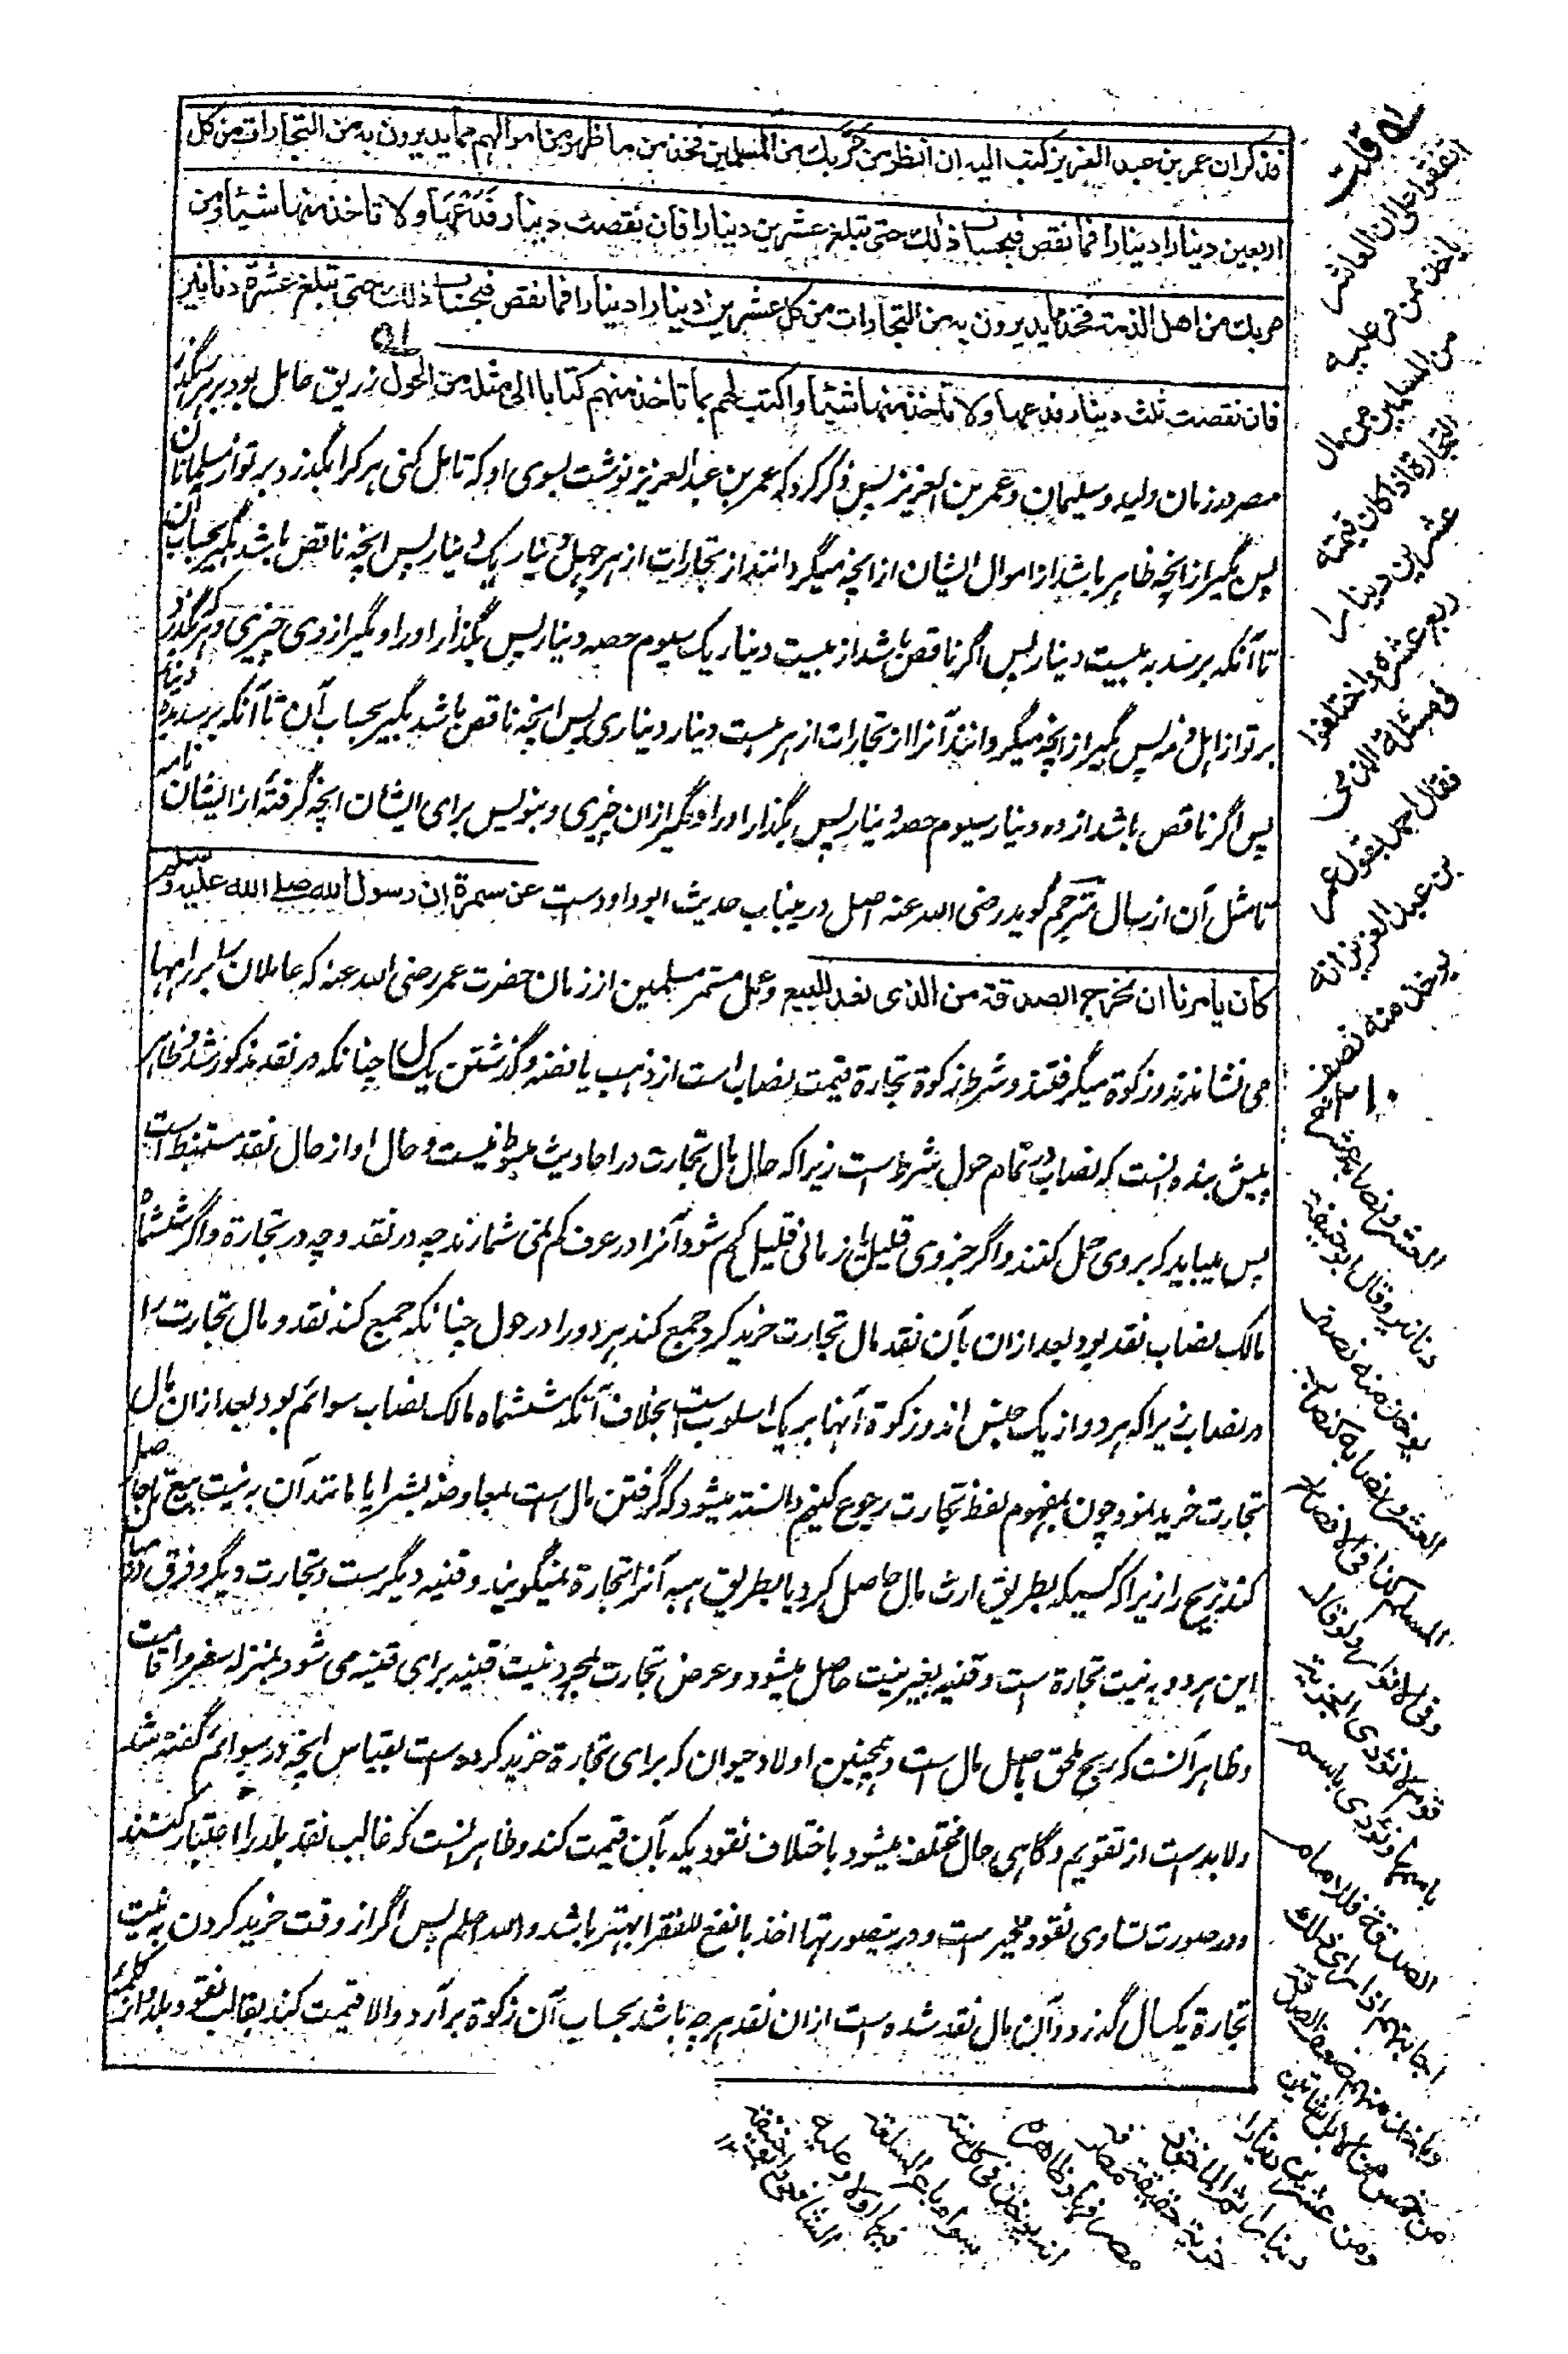 فذكر ان عمر بن عبد العزيز كتب اليه ان انظر من مر بك من المسلمين فخذ من ما ظهر من اموالهم مما يديرون به من التجارات من كل
اربعين دينارا دينارا فما نقص فبحساب ذلك حتى تبلغ عشرين دينارا فان نقصت ثلث دينار فدعها ولا تاخذ منها شيئا ومن
مر بك من اهل الذمة فخذ مما يديرون به من التجارات من كل عشرين دينارا دينارا فما نقص فبحساب ذلك حتى تبلغ عشرة دنانير
فان نقصت ثلث دينار فدعها ولا تاخذ منها شيئا واكتب لهم بما تاخذ منهم كتابا الى مثله من الحول زریق عامل بود بر
مصر در زمان ولید و سلیمان و عمر بن العزیز پس ذکر کرد که عمر بن عبد العزیز نوشت بسوی او که تامل کنی هر کرا بگذرد بر تو از مسلمانان
پس بگیر از انچه ظاهر باشد از اموال ایشان از انچه میگردانند از تجارات از هر چهل دینار یک دینار پس انچه ناقص باشد بگیر بحساب آن
تا آنکه برسد به بیست دینار پس اگر ناقص باشد از بیست دینار یک سیوم حصه دینار پس بگذار او را و مگیر از وی چیزی و هر که بگذرد
بر تو از اهل ذمه پس بگیر از انچه میگردانند آنرا از تجارات از هر بیست دینار دیناری پس انچه ناقص باشد بگیر بحساب آن تا آنکه برسد بده دینار
پس اگر ناقص باشد از ده دینار سیوم حصه دینار پس بگذار او را و مگیر ازان چیزی و بنویس برای ایشان انچه گرفتهٔ از ایشان نامه
تا مثل آن از سال مترجم گوید رضی الله عنه اصل درینباب حدیث ابو داود ست عن سمرة ان رسول الله صلى الله عليه وسلم
كان يامرنا ان نخرج الصدقة من الذى نعد للبيع و عمل مستمر مسلمین از زمان حضرت عمر رضی الله عنه که عاملان را بر راهها
می نشاندند و زکوة میگرفتند و شرط زکوة تجارة قیمت نصاب است از ذهب یا فضه و گذشتن یک سال چنانکه در نقد مذکور شد و ظاهر
پیش بنده آنست که نصاب در تمام حول شرط است زیراکه حال مال تجارت در احادیث مبسوط نیست و حال او از حال نقد مستنبط است
پس میباید که بر وی حمل کنند و اگر جزوی قلیل یا زمانی قلیل کم شود آنرا در عرف کم نمی شمارند چه در نقد و چه در تجارة و اگر ششماه
مالک نصاب نقد بود بعد ازان بآن نقد مال تجارت خرید کرد جمع کند هر دو را در حول چنانکه جمع کند نقد و مال تجارت را
در نصاب زیراکه هر دو از یک جنس اند و زکوة آنها بر یک اسلوب ست بخلاف آنکه ششماه مالک نصاب سوائم بود بعد ازان مال
تجارت خرید نمود چون بمفهوم لفظ تجارت رجوع کنیم دانسته میشود که گرفتن مال است بمعاوضه بشرا یا مانند آن به نیت بیع تا حاصل
کند ربح را زیراکه کسیکه بطریق ارث مال حاصل کرد یا بطریق هبه آنرا تجارة نمیگویند و قنیه دیگرست و تجارت دیگر و فرق در میان
این هر دو به نیت تجارة است و قنیه بغیر نیت حاصل میشود و عرض تجارت بمجرد نیت قنیه برای قنیه می شود بمنزله سفر و اقامت
و ظاهر آنست که ربح ملحق باصل مال است و همچنین اولاد حیوان که برای تجارة خرید کرده است بقیاس انچه در سوائم گفته شد
و لا بد است از تقویم و گاهی حال مختلف میشود باختلاف نقودیکه بآن قیمت کند و ظاهر آنست که غالب نقد بلد را اعتبار کنند
و در صورت تساوی نقود مخیر است و درینصورتها اخذ بانفع للفقرا بهتر باشد والله اعلم پس اگر از وقت خرید کردن به نیت
تجارة یکسال گذرد و آن مال نقد شده است ازان نقد هر چه باشد بحساب آن زکوة برآرد و الا قیمت کند بغالب نقود بلد و از
قلت
اتفقوا على ان العاشر
ياخذ من مر عليه
من المسلمين من مال
التجارة اذا كان قيمته
عشرين دينارا
ربع عشره واختلفوا
فى مسئلة الذمى
فقال احمد بقول عمر
بن عبد العزيز انه
يوخذ منه نصف
العشر ونصابه عشرة
دنانير وقال ابو حنيفة
يوخذ منه نصف
العشر ونصابه كنصاب
المسلم